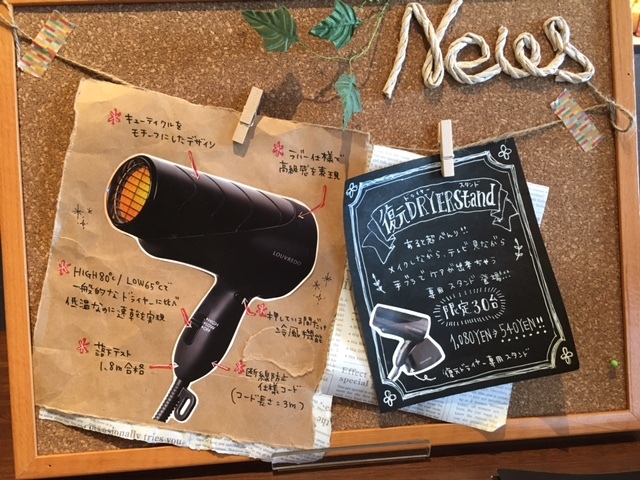 News
キューティクルを
モチーフにしたデザイン
ラバー仕様で
高級感を表現
LOUVREDO
HIGH80℃/LOW65℃で
一般的なドライヤーに比べ
低温なのに速乾を実現
押している間だけ
冷風機能
落下テスト
1.8m合格
断線防止
仕様コード
(コード長さ=3m)
ドライヤー スタンド
復元DRYERStand
あると超べんり!!
メイクしながら、テレビ見ながら
手ぶらでケアが出来ちゃう
専用スタンド登場!!
限定30台
1,080YEN→540YEN!!
復元ドライヤー専用スタンド
Effec
special
casionally tries you